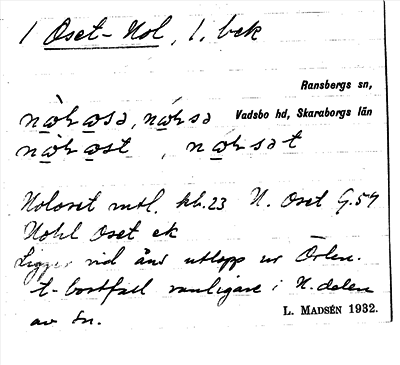 1 Oset-Nol, 1. bek
Ransbergs sn,
Vadsbo hd, Skaraborgs län
Noloset mtl. kb. 23 N. Oset G. 54
Nohl Oset ek
Ligger vid åns utlopp ur Örlen.
t-bortfall vanligare i N. delen
av sn.
L. MADSÉN 1932.